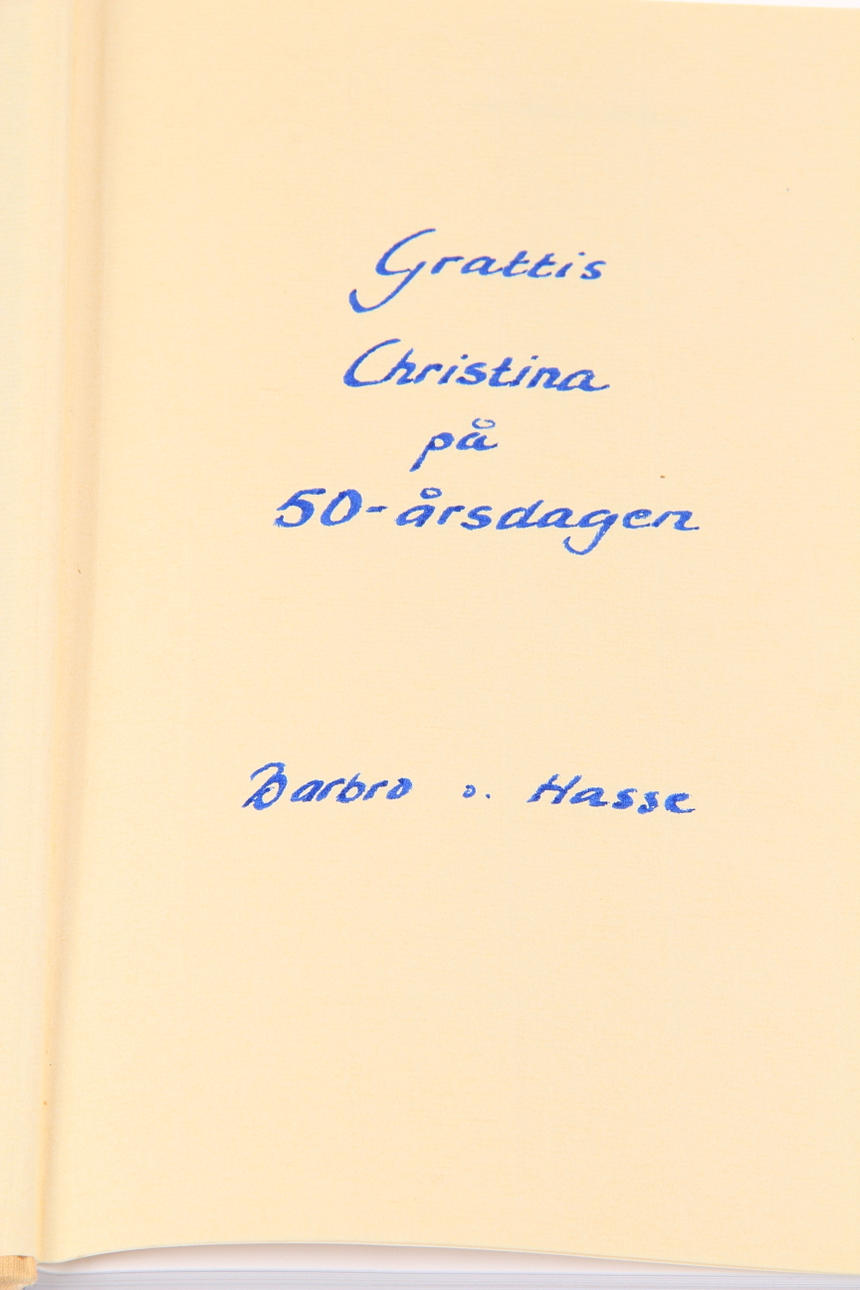 Grattis
Christina
på
50-årsdagen
Barbro o. Hasse